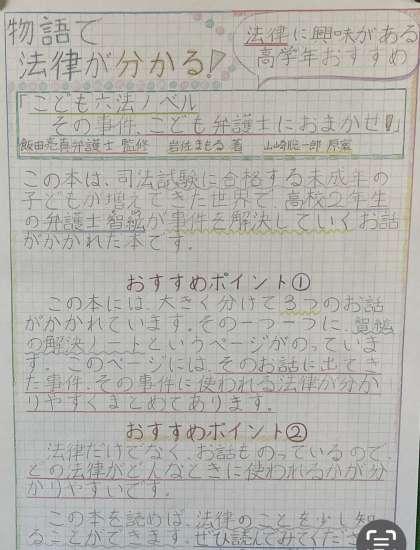 物語で
法律が分かる!
法律に興味がある
高学年おすすめ
「こども六法ノベル
その事件、こども弁護士におまかせ!」
飯田亮真弁護士 監修 岩佐まもる 著 山崎聡一郎 原案
この本は、司法試験に合格する未成年の
子どもが増えてきた世界で、高校2年生
の弁護士智紘が事件を解決していくお話
がかかれた本です。
おすすめポイント①
この本には、大きく分けて3つのお話
がかかれています。その一つ一つに、
の解決ノートというページがのっていま
す。このページには、そのお話に出てき
た事件、その事件に使われる法律が分か
りやすくまとめてあります。
おすすめポイント②
法律だけでなく、お話ものっているので、
どの法律がどんなときに使われるかが分
かりやすいです。
この本を読めば、法律のことを少し知
ることができます。ぜひ読んでみてくださ